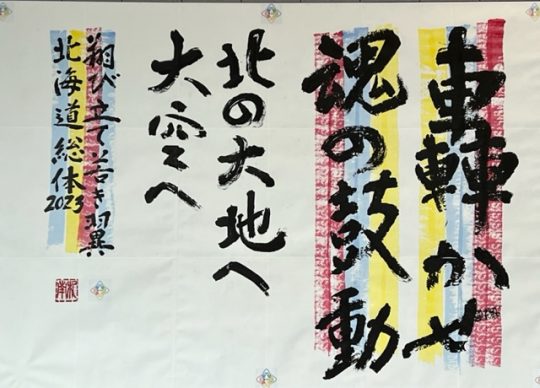 轟かせ
魂の鼓動
北の大地へ
大空へ
翔び立て若き翼
北海道総体2023